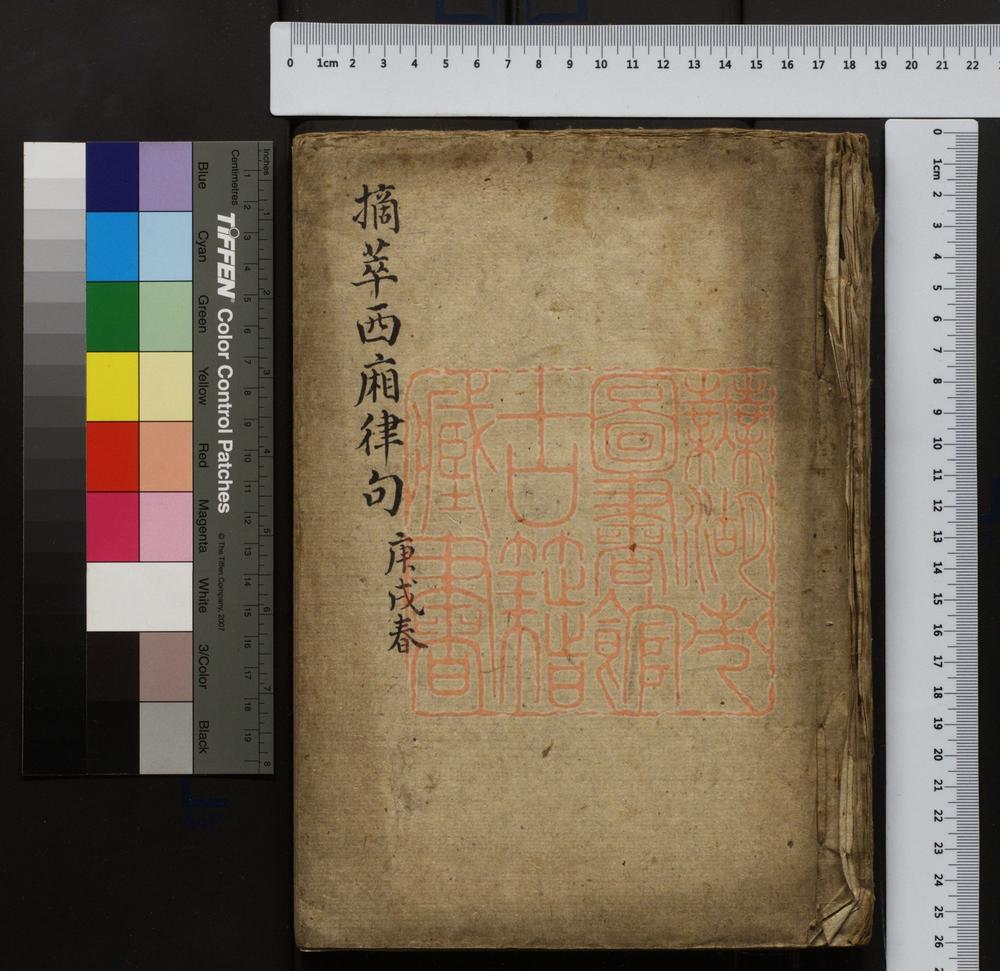 摘萃西廂律句
庚戌春
蕪湖市
圖書館
古籍
藏書
0 1cm 2 3 4 5 6 7 8 9 10 11 12 13 14 15 16 17 18 19 20 21 22
0 1cm 2 3 4 5 6 7 8 9 10 11 12 13 14 15 16 17 18 19 20 21 22 23 24 25 26
Inches
1 2 3 4 5 6 7 8
Centimetres
1 2 3 4 5 6 7 8 9 10 11 12 13 14 15 16 17 18 19
TIFFEN Color Control Patches
© The Tiffen Company, 2007
Blue Cyan Green Yellow Red Magenta White 3/Color Black